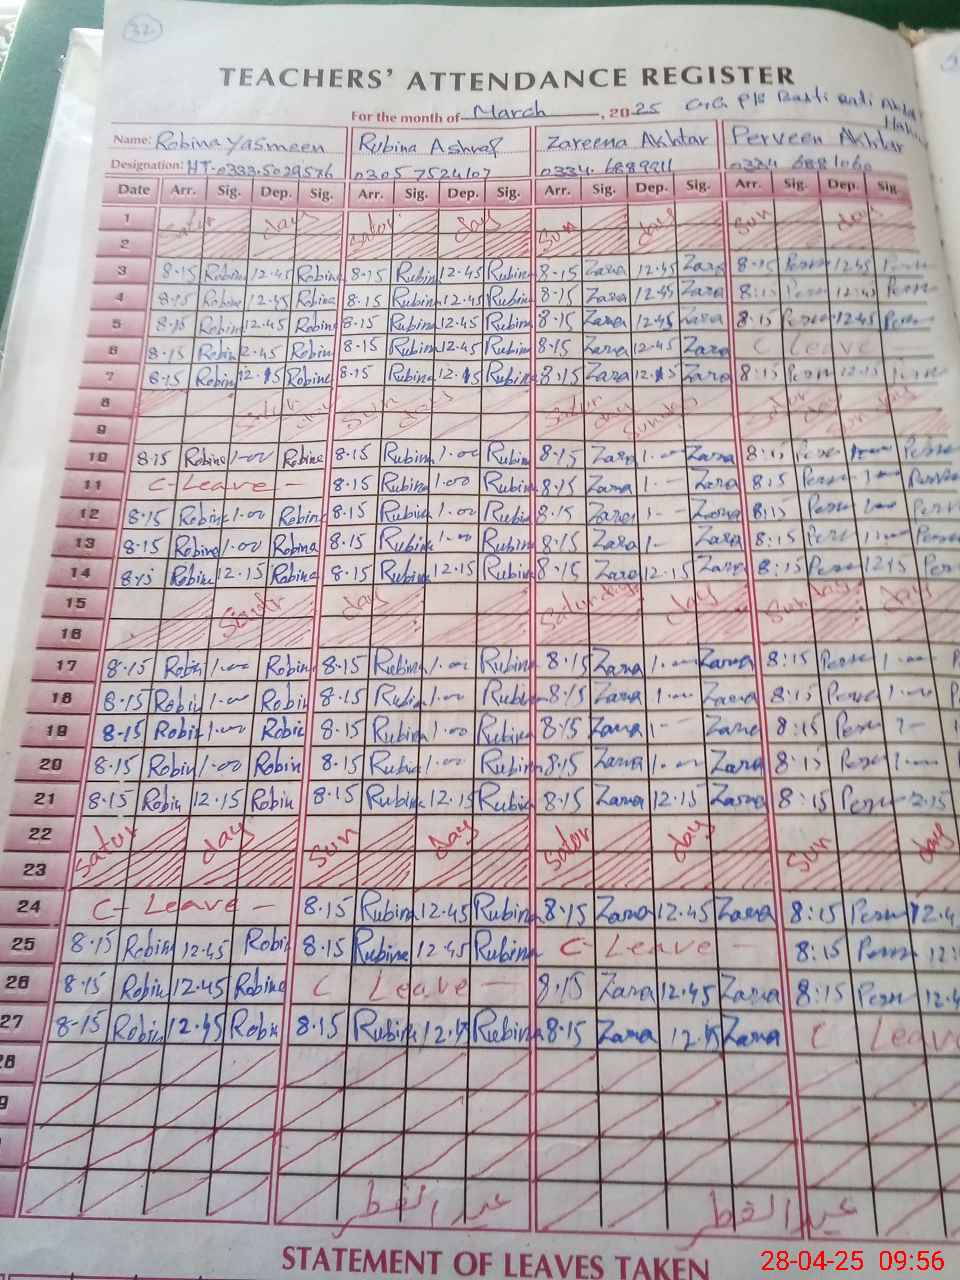 32
TEACHERS' ATTENDANCE REGISTER
For the month of March, 2025
Name: Robina Yasmeen Rubina Ashraf Zareena Akhtar Perveen Akhtar
Designation: HT-0333-5029576 0305 7524107 0334. 6889911 0334 6881060
Date Arr. Sig. Dep. Sig. Arr. Sig. Dep. Sig. Arr. Sig. Dep. Sig. Arr. Sig. Dep. Sig.
1 Satur day Sator day Sun day Sun day
2
3 8-15 Robina 12.45 Robina 8-15 Rubina 12.45 Rubina 8-15 Zara 12.45 Zara 8-15 12.45
4 8.15 Robina 12.45 Robina 8.15 Rubina 12.45 Rubina 8.15 Zara 12.45 Zara 8:15 12.45
5 8.15 Robina 12.45 Robina 8.15 Rubina 12.45 Rubina 8.15 Zara 12.45 Zara 8:15 12.45
6 8.15 Robin 2.45 Robina 8.15 Rubina 12.45 Rubina 8.15 Zara 12.45 Zara C Leave
7 8.15 Robin 12.15 Robina 8.15 Rubina 12.15 Rubina 8.15 Zara 12.15 Zara 8:15 12.15
8 Sun day Satur day Sunday Satur day Sun day
9
10 8.15 Robina 1-00 Robina 8.15 Rubina 1.00 Rubina 8.15 Zara 1.-- Zara 8:15
11 C-Leave- 8.15 Rubina 1.00 Rubina 8.15 Zara 1-- Zara 8:5
12 8.15 Robina 1.00 Robina 8.15 Rubina 1.00 Rubina 8.15 Zara 1-- Zara 8:15
13 8.15 Robina 1.00 Robina 8.15 Rubina 1.-- Rubina 8.15 Zara 1- Zara 8:15
14 8.15 Robina 12.15 Robina 8.15 Rubina 12.15 Rubina 8.15 Zara 12.15 Zara 8:15 12.15
15 day Saturday day Sunday day
16
17 8.15 Robin 1.-- Robina 8.15 Rubina 1.-- Rubina 8.15 Zara 1.-- Zara 8:15
18 8.15 Robin 1.-- Robin 8.15 Rubina 1.-- Rubina 8.15 Zara 1.-- Zara 8:15
19 8.15 Robin 1.-- Robin 8.15 Rubina 1.00 Rubina 8.15 Zara 1-- Zara 8:15
20 8.15 Robin 1.00 Robin 8.15 Rubina 1.-- Rubina 8.15 Zara 1.-- Zara 8:15
21 8.15 Robin 12.15 Robin 8.15 Rubina 12.15 Rubina 8.15 Zara 12.15 Zara 8:15 2.15
22 Sator day Sun day Sator day Sun day
23
24 C- Leave - 8.15 Rubina 12.45 Rubina 8.15 Zara 12.45 Zara 8:15 12.4
25 8.15 Robina 12.45 Robi 8.15 Rubina 12.45 Rubina C- Leave - 8:15
26 8.15 Robin 12.45 Robina C Leave - 8.15 Zara 12.45 Zara 8:15 12.4
27 8-15 Robin 12.45 Robin 8.15 Rubina 12.45 Rubina 8.15 Zara 12.45 Zara C Leave
28
عید الفطر عید الفطر
STATEMENT OF LEAVES TAKEN
28-04-25 09:56